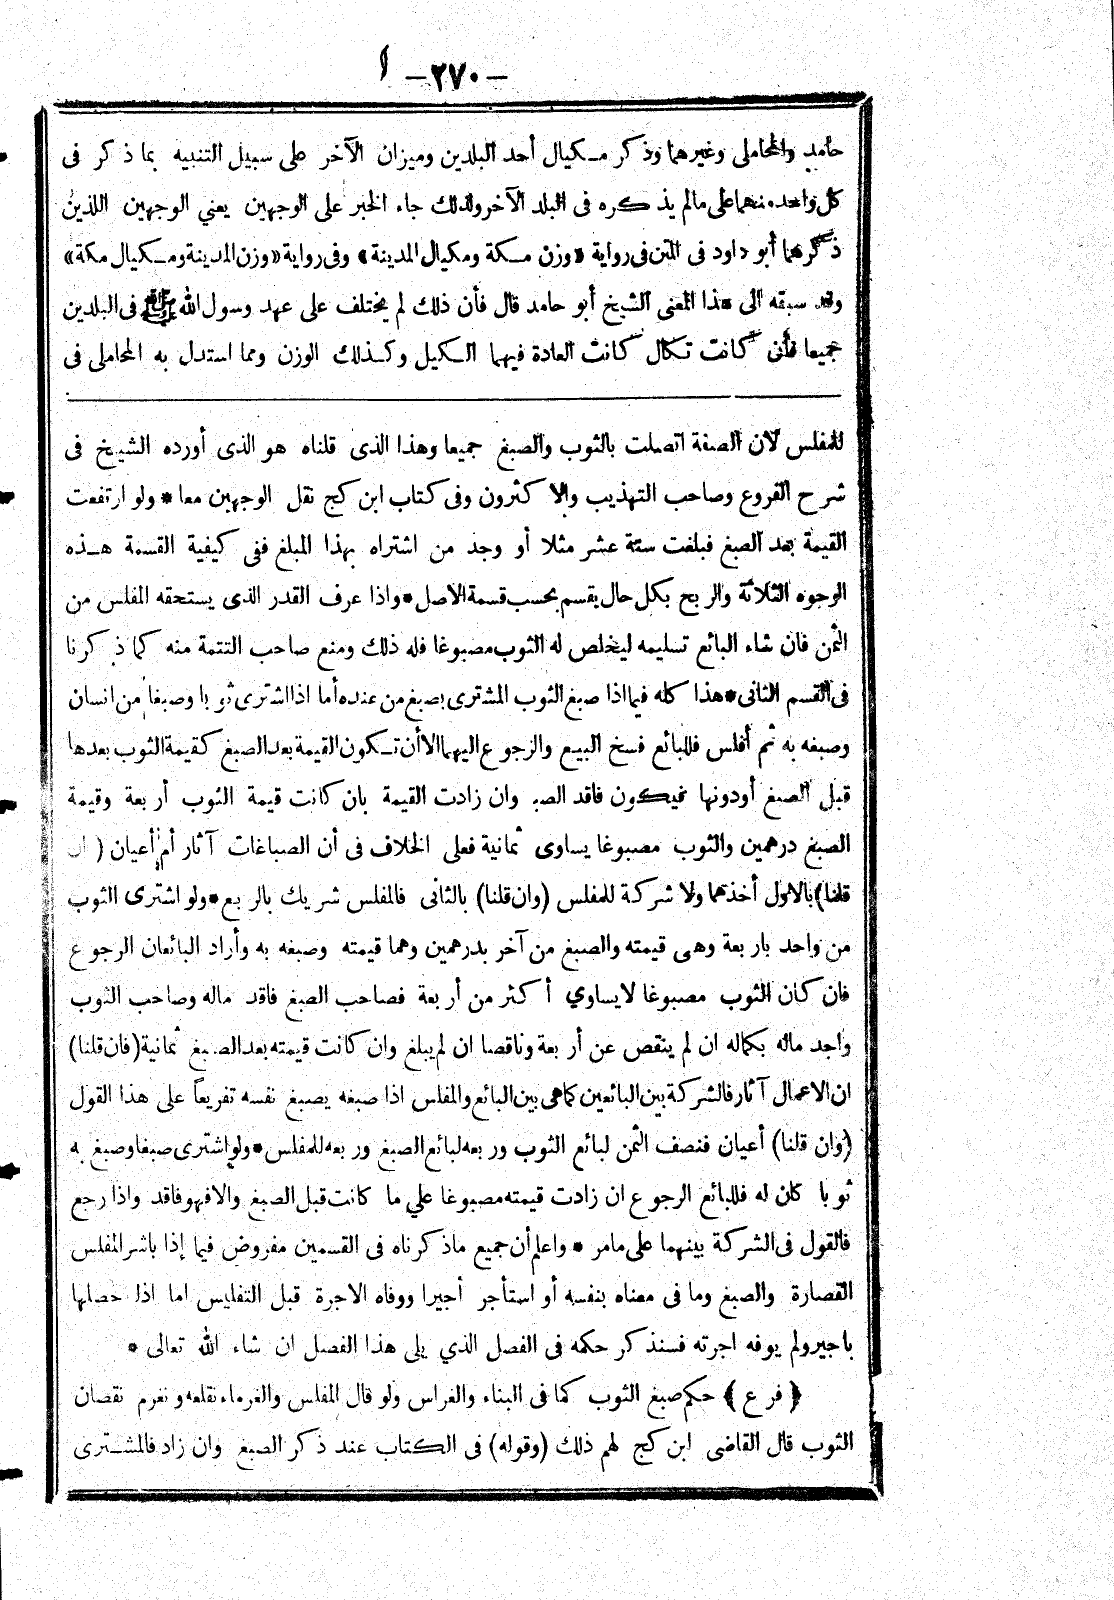 -٢٧٠-
حامد والمحاملى وغيرهما وذكر مكيال أحد البلدين وميزان الآخر على سبيل التنبيه بما ذكر فى
كل واحد منهما على مالم يذكره فى البلد الآخر ولذلك جاء الخبر على الوجهين يعني الوجهين اللذين
ذكرهما أبو داود فى المتن فى رواية «وزن مكة ومكيال المدينة» وفى رواية «وزن المدينة ومكيال مكة»
وقد سبقه الى هذا المعنى الشيخ أبو حامد قال فأن ذلك لم يختلف على عهد رسول الله ﷺ فى البلدين
جميعا فأنى كانت تكال كانت العادة فيهما الكيل وكذلك الوزن ومما استدل به المحاملى فى
للمفلس لان الصفة اتصلت بالثوب والصبغ جميعا وهذا الذى قلناه هو الذى أورده الشيخ فى
شرح الفروع وصاحب التهذيب والاكثرون وفى كتاب ابن كج نقل الوجهين معا * ولو ارتفعت
القيمة بعد الصبغ فبلغت ستة عشر مثلا أو وجد من اشتراه بهذا المبلغ ففى كيفية القسمة هذه
الوجوه الثلاثة والربح بكل حال يقسم بحسب قسمة الاصل * واذا عرف القدر الذى يستحقه المفلس من
الثمن فان شاء البائع تسليمه ليخلص له الثوب مصبوغا فله ذلك ومنع صاحب التتمة منه كما ذكرنا
فى القسم الثانى * هذا كله فيما اذا صبغ الثوب المشترى بصبغ من عنده أما اذا اشترى ثوبا وصبغا من انسان
وصبغه به ثم أفلس فللبائع فسخ البيع والرجوع اليهما الا أن تكون القيمة بعد الصبغ كقيمة الثوب بعدها
قبل الصبغ أو دونها فيكون فاقد الصبـ وان زادت القيمة بان كانت قيمة الثوب أربعة وقيمة
الصبغ درهمين والثوب مصبوغا يساوى ثمانية فعلى الخلاف فى أن الصباغات آثار أم أعيان ( ان
قلنا) بالاول أخذهما ولا شركة للمفلس (وان قلنا) بالثانى فالمفلس شريك بالربع * ولو اشترى الثوب
من واحد باربعة وهى قيمته والصبغ من آخر بدرهمين وهما قيمته وصبغه به وأراد البائعان الرجوع
فان كان الثوب مصبوغا لا يساوي أكثر من أربعة فصاحب الصبغ فاقد ماله وصاحب الثوب
واجد ماله بكماله ان لم ينقص عن أربعة وناقصا ان لم يبلغ وان كانت قيمته بعد الصبغ ثمانية (فان قلنا)
ان الاعمال آثار فالشركة بين البائعين كما هى بين البائع والمفلس اذا صبغه بصبغ نفسه تفريعاً على هذا القول
(وان قلنا) أعيان فنصف الثمن لبائع الثوب وربعه لبائع الصبغ وربعه للمفلس * ولو اشترى صبغا وصبغ به
ثوبا كان له فللبائع الرجوع ان زادت قيمته مصبوغا علي ما كانت قبل الصبغ والافهو فاقد واذا رجع
فالقول فى الشركة بينهما على مامر * واعلم أن جميع ماذكرناه فى القسمين مفروض فيما إذا باشر المفلس
القصارة والصبغ وما فى معناه بنفسه أو استأجر أجيرا ووفاه الاجرة قبل التفليس اما اذا حصلها
باجير ولم يوفه اجرته فسنذكر حكمه فى الفصل الذي يلى هذا الفصل ان شاء الله تعالى *
﴿ فرع ﴾ حكم صبغ الثوب كما فى البناء والغراس ولو قال المفلس والغرماء نقلعه ونغرم نقصان
الثوب قال القاضى ابن كج لهم ذلك (وقوله) فى الكتاب عند ذكر الصبغ وان زاد فالمشترى